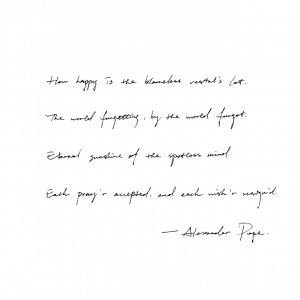 How happy is the blameless vestal's lot.
The world forgetting, by the world forgot.
Eternal sunshine of the spotless mind
Each pray'r accepted, and each wish'r resign'd.
— Alexander Pope.